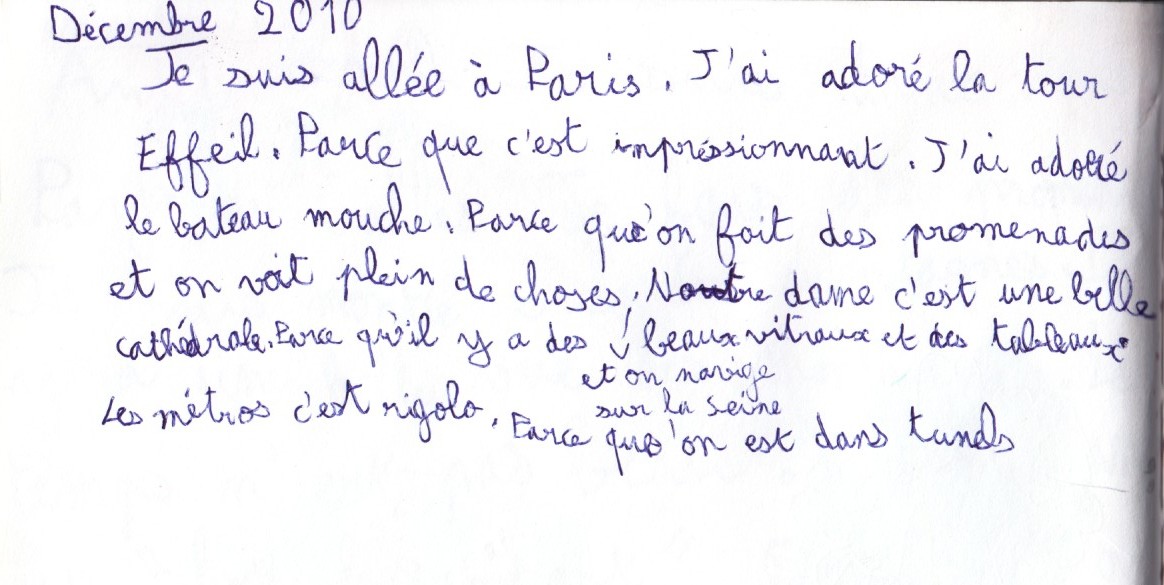 Décembre 2010
Je suis allée à Paris. J'ai adoré la tour
Effeil. Parce que c'est impressionnant. J'ai adoré
le bateau mouche. Parce que'on fait des promenades
et on voit plein de choses. Noutre dame c'est une belle
cathédrale. Parce qu'il y a des beaux vitraux et des tableaux.
et on navige
sur la seine
Les métros c'est rigolo. Parce que'on est dans tunels